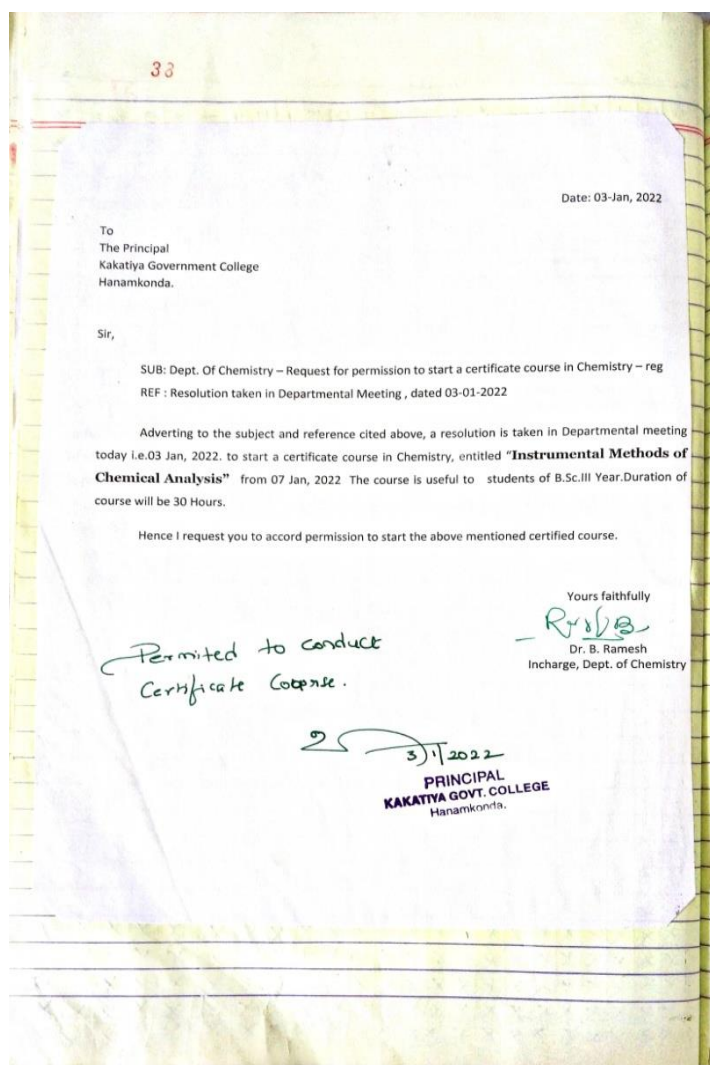 33
Date: 03-Jan, 2022
To
The Principal
Kakatiya Government College
Hanamkonda.
Sir,
SUB: Dept. Of Chemistry – Request for permission to start a certificate course in Chemistry – reg
REF : Resolution taken in Departmental Meeting , dated 03-01-2022
Adverting to the subject and reference cited above, a resolution is taken in Departmental meeting
today i.e.03 Jan, 2022. to start a certificate course in Chemistry, entitled “Instrumental Methods of
Chemical Analysis” from 07 Jan, 2022 The course is useful to students of B.Sc.III Year.Duration of
course will be 30 Hours.
Hence I request you to accord permission to start the above mentioned certified course.
Yours faithfully
Dr. B. Ramesh
Incharge, Dept. of Chemistry
Permited to conduct
Certificate
3/1/2022
PRINCIPAL
KAKATIYA GOVT. COLLEGE
Hanamkonda.